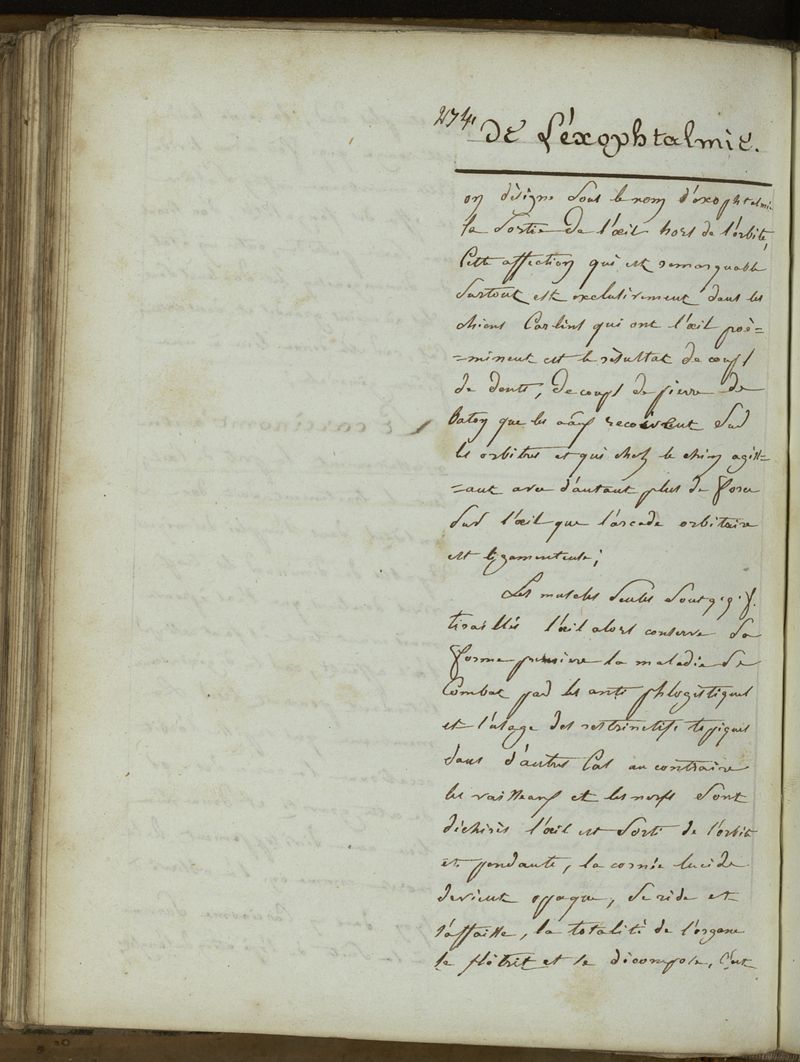 274
de L'éxophtalmie.
on désigne sous le nom d'exophtalmie
la sortie de l'œil hors de l'orbite,
Cette affection qui est remarquable
surtout est exclusivement dans les
chiens Carlins qui ont l'œil poë=
=minent est le résultat de coups
de dents, de coups de pierre de
baton que les aãx recoivent sur
les orbites et qui chez le chien agiss=
=ant avec d'autant plus de force
sur l'œil que l'arcade orbitaire
est ligamenteuse;
Les muscles seules sont q.q.f.
tiraillés l'œil alors conserve sa
forme première la maladie se
Combat par les anti phlogistiques
et l'usage des restrinctifs topiques
dans d'autres Cas au contraire
les vaisseaux et les nerfs sont
déchirés l'œil est sorti de l'orbite
et pendante, la cornée lucide
devient opaque, se ride et
s'affaisse, la totalité de l'organe
se flétrit et se décompose, C'est